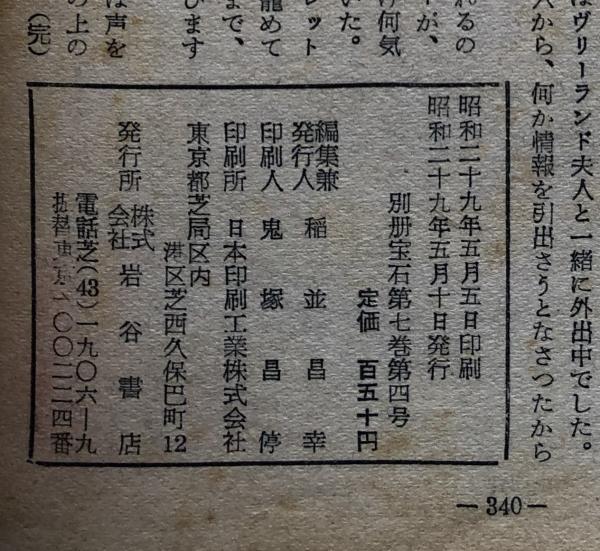 はヴリーランド夫人と一緒に外出中でした。
から、何か情報を引出さうとなさつたから
れるの
が、
何気
いた。
レット
籠めて
まで、
びます
は声を
の上の
(完)
昭和二十九年五月五日印刷
昭和二十九年五月十日発行
別册宝石第七巻第四号
定価 百五十円
編集兼
発行人 稲並昌幸
印刷人 鬼塚昌停
印刷所 日本印刷工業株式会社
東京都芝局区内
港区芝西久保巴町12
発行所 株式会社 岩谷書店
電話芝(43)一九〇六—九
振替東京一〇〇二二四番
—340—